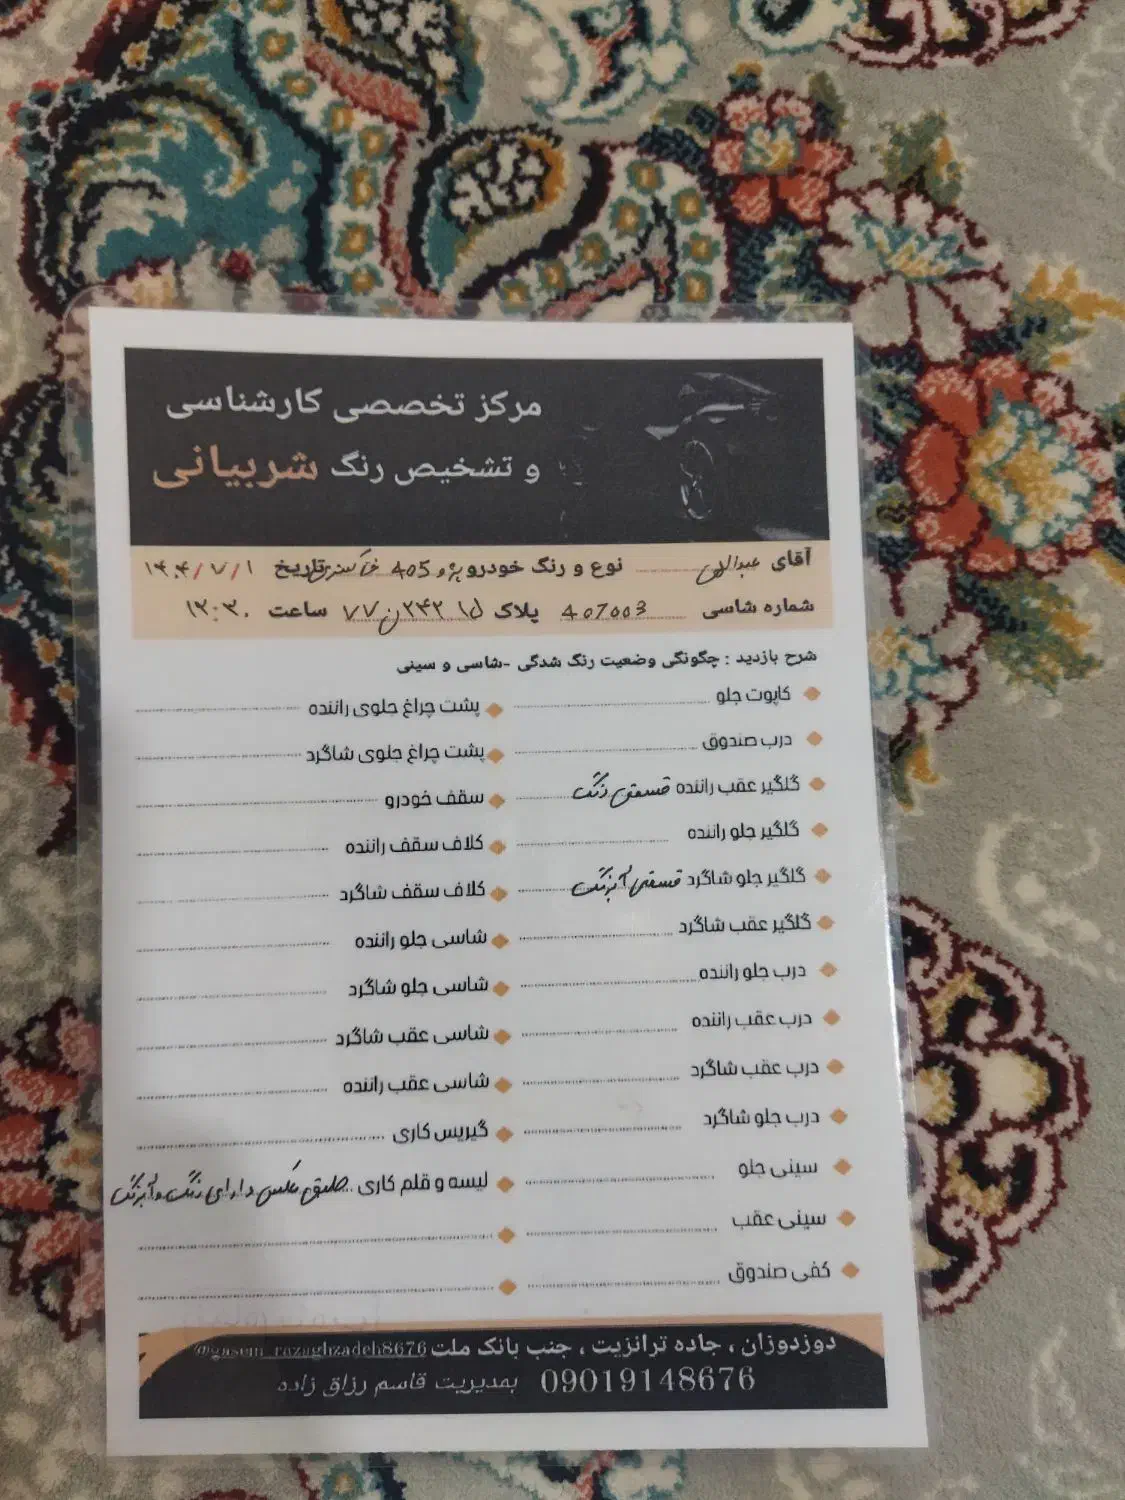 مرکز تخصصی کارشناسی
و تشخیص رنگ شربیانی
آقای نوع و رنگ خودرو پژو 405 خاکستری تاریخ ۱۴۰۴/۷/۱
شماره شاسی 407003 پلاک ۱۵ ۲۴۲ن۷۷ ساعت ۱۲:۳۰
شرح بازدید : چگونگی وضعیت رنگ شدگی -شاسی و سینی
کاپوت جلو
درب صندوق
گلگیر عقب راننده قسمتی رنگ
گلگیر جلو راننده
گلگیر جلو شاگرد قسمتی آبرنگ
گلگیر عقب شاگرد
درب جلو راننده
درب عقب راننده
درب عقب شاگرد
درب جلو شاگرد
سینی جلو
سینی عقب
کفی صندوق
پشت چراغ جلوی راننده
پشت چراغ جلوی شاگرد
سقف خودرو
کلاف سقف راننده
کلاف سقف شاگرد
شاسی جلو راننده
شاسی جلو شاگرد
شاسی عقب شاگرد
شاسی عقب راننده
گیریس کاری
لیسه و قلم کاری طبق عکس دارای رنگ و آبرنگ
دوزدوزان ، جاده ترانزیت ، جنب بانک ملت @gasem_razaghzadeh8676
09019148676 بمدیریت قاسم رزاق زاده